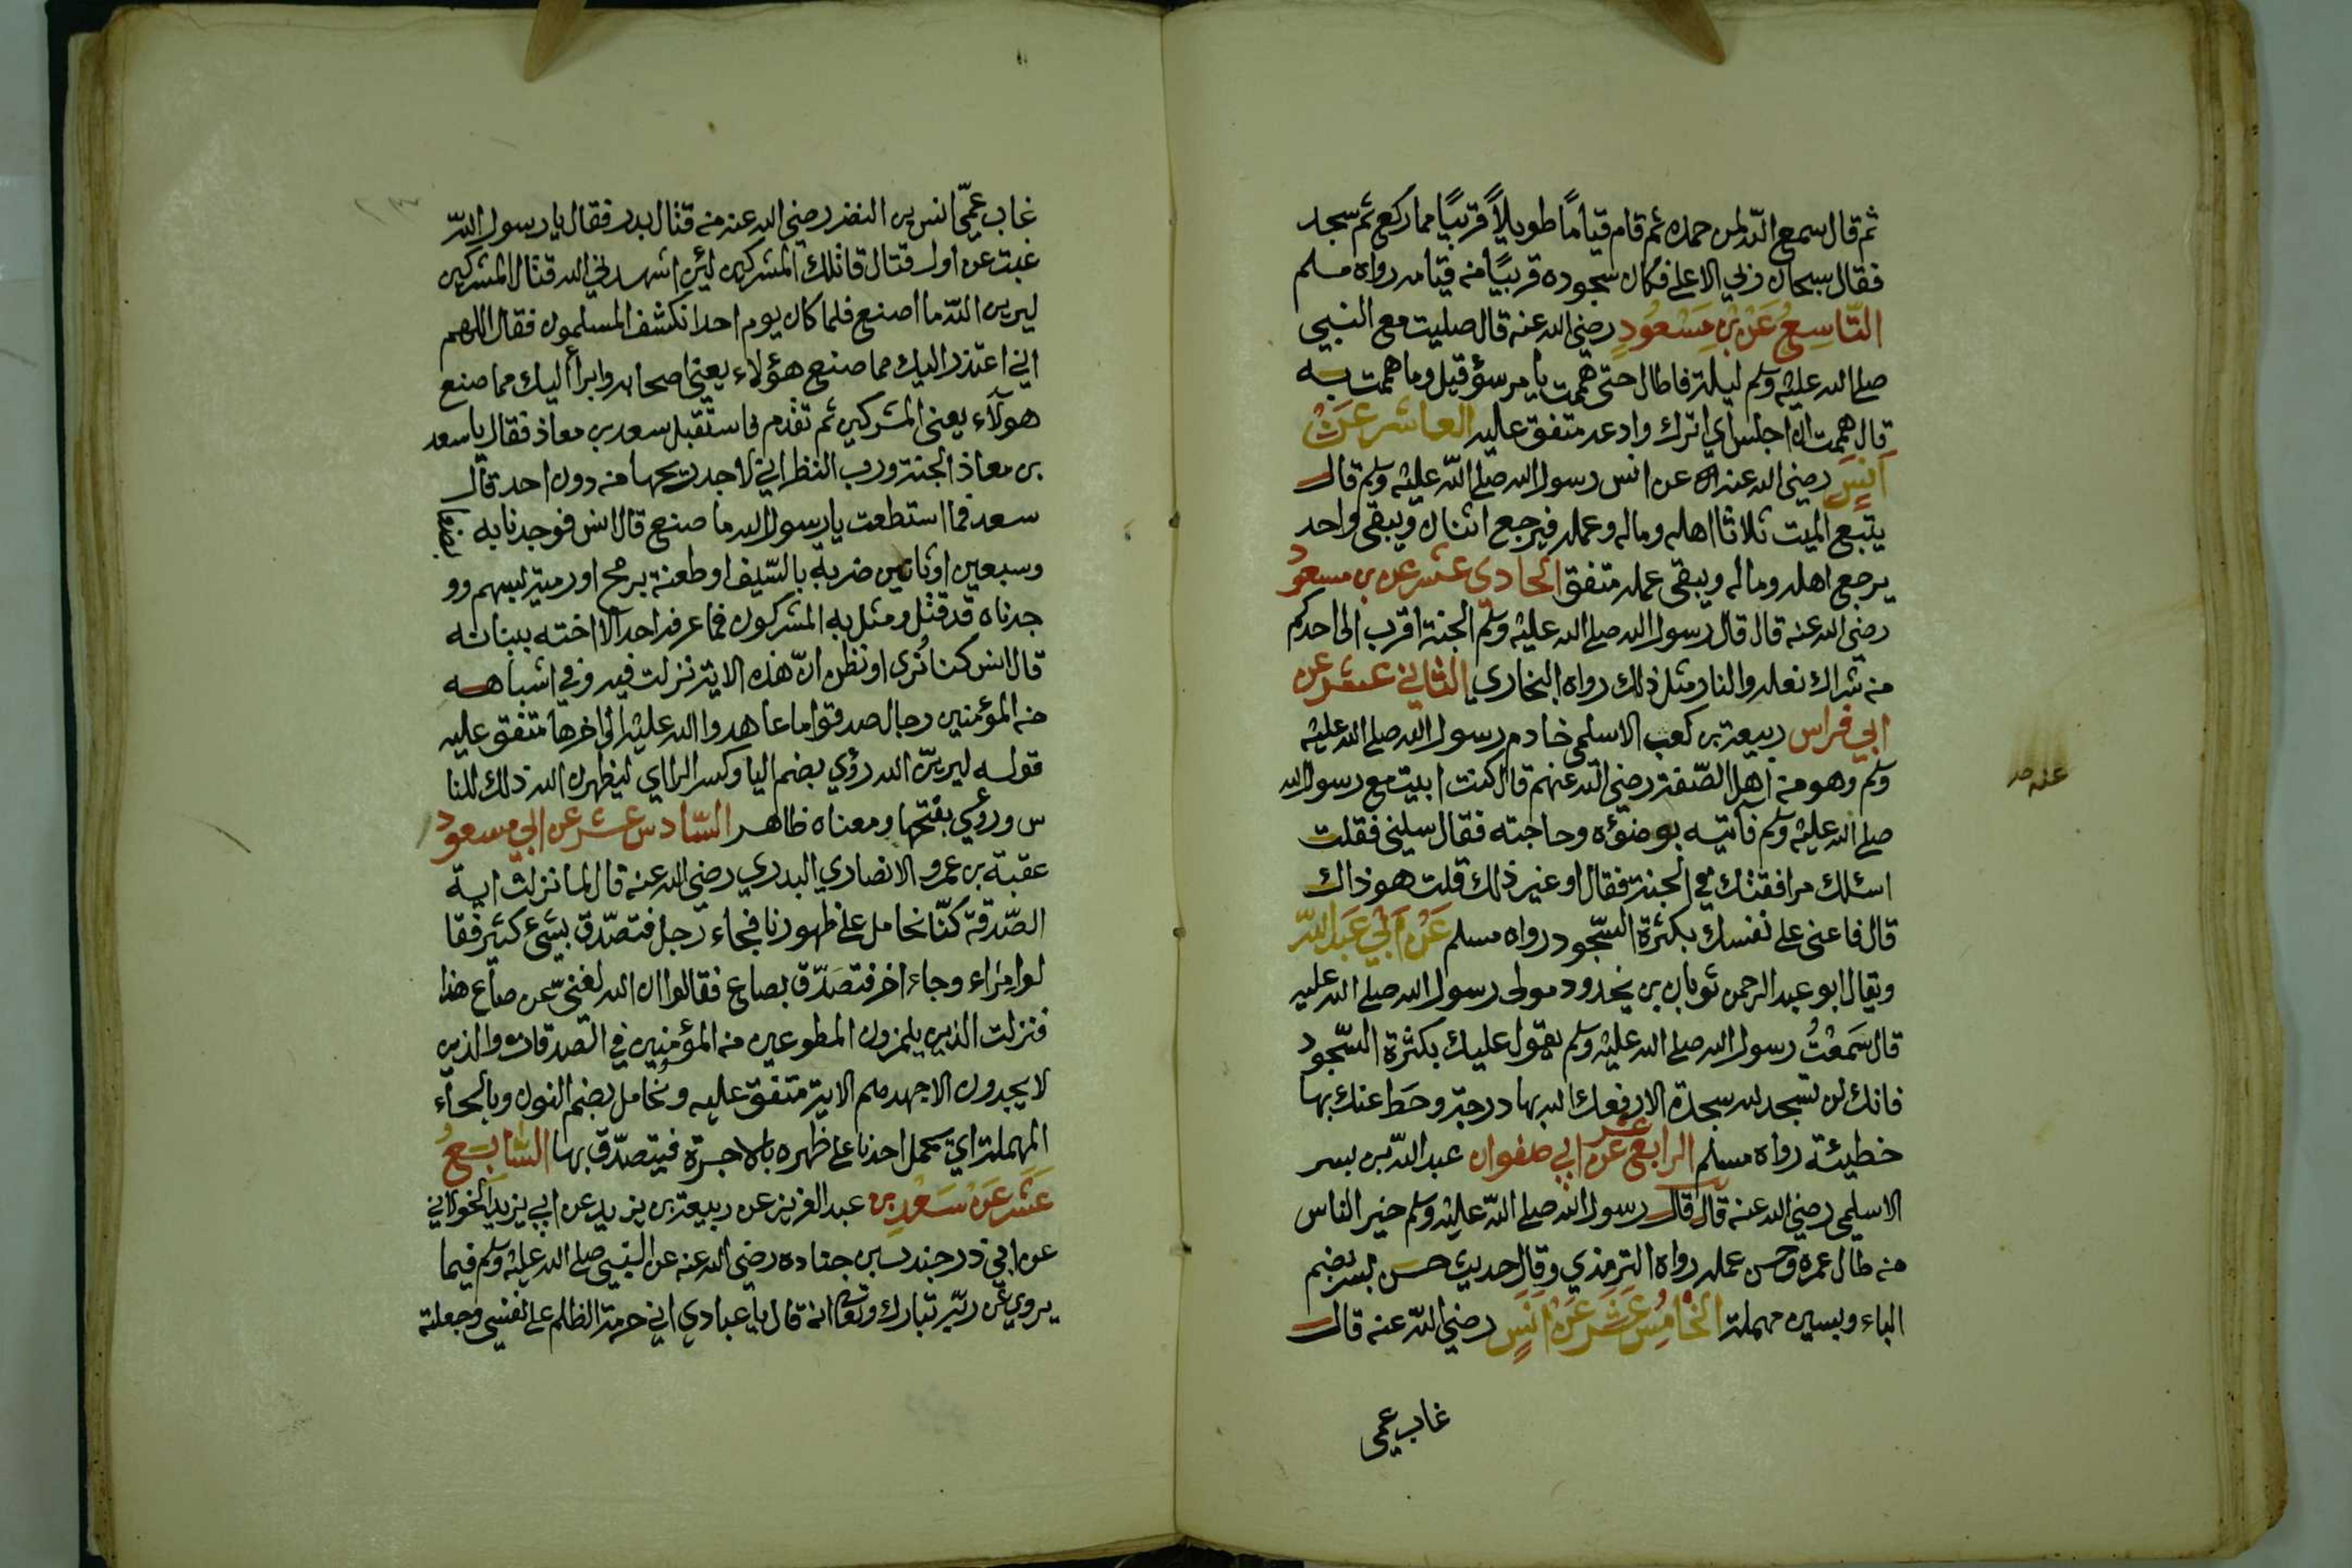 ثم قال سمع الله لمن حمده ثم قام قيامًا طويلاً قريبًا مما ركع ثم سجد
فقال سبحان ربي الاعلى فكان سجوده قريبًا من قيامه رواه مسلم
التّاسِعُ عَنْ بْنِ مَسْعُودٍ رضي الله عنه قال صليت مع النبي
صلى الله عليه وسلم ليلة فاطال حتى هممت بامر سوء قيل وما هممت به
قال هممت ان اجلس اي اترك وادعه متفق عليه العاشر عَنْ
اَنَسٍ رضي الله عنه عن انس رسول الله صلى الله عليه وسلم قال
يتبع الميت ثلاثا اهله وماله وعمله فيرجع اثنان ويبقى واحد
يرجع اهله وماله ويبقى عمله متفق الحادي عشر عن بن مسعود
رضي الله عنه قال قال رسول الله صلى الله عليه وسلم الجنة اقرب الى احدكم
من شراك نعله والنار مثل ذلك رواه البخاري الثاني عشر عن
ابي فراس ربيعة بن كعب الاسلمي خادم رسول الله صلى الله عليه
وسلم وهو من اهل الصّفة رضي الله عنهم قال كنت ابيت مع رسول الله
صلى الله عليه وسلم فآتيه بوضوءه وحاجته فقال سلني فقلت
اسئلك مرافقتك في الجنة فقال او غير ذلك قلت هو ذاك
قال فاعني على نفسك بكثرة السّجود رواه مسلم عَنْ اَبِي عَبْدِ اللهِ
ويقال ابو عبد الرحمن ثوبان بن يخدود مولى رسول الله صلى الله عليه
قال سَمعْتُ رسول الله صلى الله عليه وسلم يقول عليك بكثرة السّجود
فانك لن تسجد لله سجدة الا رفعك الله بها درجة وحط عنك بها
خطيئة رواه مسلم الرابع عشر عن ابي صفوان عبد الله بن بسر
الاسلمي رضي الله عنه قال قال رسول الله صلى الله عليه وسلم خير الناس
من طال عمره وحسن عمله رواه الترمذي وقال حديث حسن بسر بضم
الباء وبسين مهملة الخَامِسُ عَشَرَ عَنْ اَنَسٍ رضي الله عنه قال
غاب عمي
عنه صح
غاب عمّي انس بن النضر رضي الله عنه من قتال بدر فقال يا رسول الله
غبت عن اول قتال قاتلت المشركين لئن اشهدني الله قتال المشركين
ليرين الله ما اصنع فلما كان يوم احد انكشف المسلمون فقال اللهم
اني اعتذر اليك مما صنع هؤلاء يعني اصحابه وابرأ اليك مما صنع
هولآء يعني المشركين ثم تقدم فاستقبل سعد بن معاذ فقال يا سعد
بن معاذ الجنة ورب النظر اني لاجد ريحها من دون احد قال
سعد فما استطعت يا رسول الله ما صنع قال انس فوجدنا به
وسبعين او ثمانين ضربة بالسّيف او طعنة برمح او رمية بسهم وو
جدناه قد قتل ومثل به المشركون فما عرفه احد الا اخته ببنانه
قال انس كنا نُرى او نظن انّ هذه الاية نزلت فيه وفي اشباهه
من المؤمنين رجال صدقوا ما عاهدوا الله عليه الى اخرها متفق عليه
قوله ليرينّ الله رؤي بضم اليا وكسر الراي ليظهرن الله ذلك للنا
س وروي بفتحها ومعناه ظاهر السّادس عشر عن ابي مسعود
عقبة بن عمرو الانصاري البدري رضي الله عنه قال لما نزلت اية
الصّدقة كنّا نحامل على ظهورنا فجاء رجل فتصدّق بشيء كثير فقا
لوا مراء وجاء اخر فتصدّق بصاع فقالوا ان الله لغنيّ عن صاع هذا
فنزلت الذين يلمزون المطوعين من المؤمنين في الصدقات والذين
لا يجدون الا جهدهم الاية متفق عليه ونُحامل بضم النون وبالحاء
المهملة اي يحمل احدنا على ظهره بالاجرة فيتصدّق بها السّابعُ
عَشَر عَنْ سَعْدِ بن عبد العزيز عن ربيعة بن يزيد عن ابي يزيد الخولاني
عن ابي ذر جندب بن جناده رضي الله عنه عن النبي صلى الله عليه وسلم فيما
يروي عن ربّه تبارك وتعالى انه قال يا عبادي اني حرمت الظلم على نفسي وجعلته